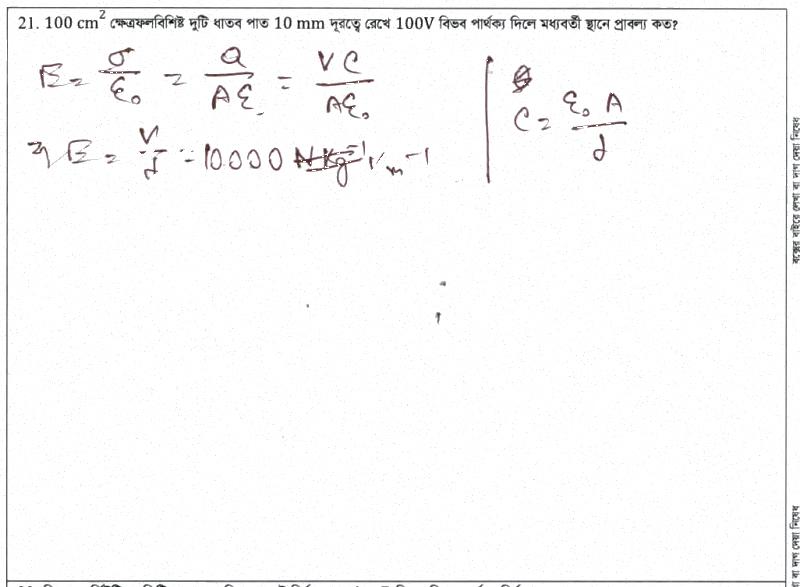 21. 100 cm² ক্ষেত্রফলবিশিষ্ট দুটি ধাতব পাত 10 mm দূরত্বে রেখে 100V বিভব পার্থক্য দিলে মধ্যবর্তী স্থানে প্রাবল্য কত?
E = σ/ε₀ = Q/Aε = VC/Aε₀
E = V/d = 10000 Vm⁻¹
C = ε₀A/d
বক্সের বাইরে লেখা বা দাগ দেয়া নিষেধ
বা দাগ দেয়া নিষেধ